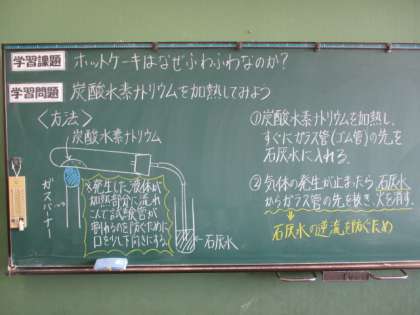 学習課題 ホットケーキはなぜふわふわなのか?
学習問題 炭酸水素ナトリウムを加熱してみよう
〈方法〉
炭酸水素ナトリウム
ガスバーナー
※発生した液体が
加熱部分に流れ
こんで試験管が
割れるのを防ぐために
口を少し下向きにする。
石灰水
①炭酸水素ナトリウムを加熱し、
すぐにガラス管(ゴム管)の先を
石灰水に入れる。
②気体の発生が止まったら石灰水
からガラス管の先を抜き、火を消す。
石灰水の逆流を防ぐため